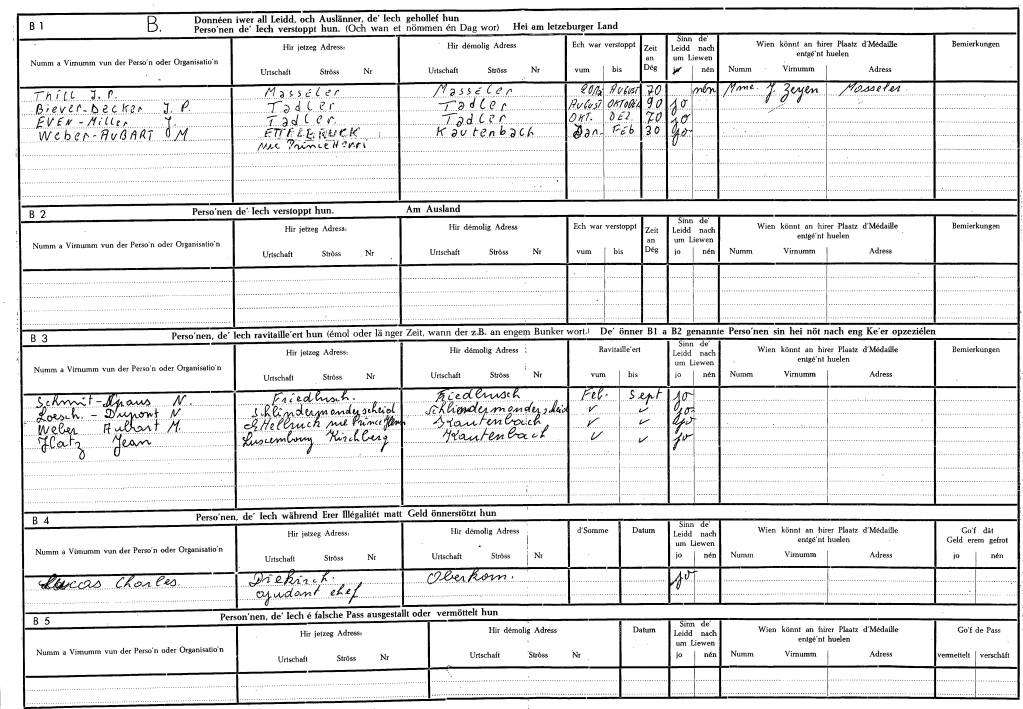 B 1 B. Donnéen iwer all Leidd, och Auslänner, de' Iech gehollef hun
Perso'nen de' Iech verstoppt hun. (Och wan et nömmen én Dag wor) Hei am letzeburger Land
Numm a Virnumm vun der Perso'n oder Organisatio'n Hir jetzeg Adress: Hir démolig Adress Ech war verstoppt Zeit an Dég Sinn de' Leidd nach um Liewen Wien könnt an hirer Plaatz d'Médaille entgé'nt huelen Bemierkungen
Urtschaft Ströss Nr Urtschaft Ströss Nr vum bis jo nén Numm Virnumm Adress
Thill J. P. Masseler Masseler August 70 nén Mme. J. Zeyen Masseler
Biever-Decker J. P. Tadler Tadler August Oktober 90 jo
Even-Miller J. Tadler Tadler Okt. Dez. 70 jo
Weber-Aubart M Ettelbruck Kautenbach Jan. Feb 30 jo
rue Prince Henri
B 2 Perso'nen de' Iech verstoppt hun. Am Ausland
Numm a Virnumm vun der Perso'n oder Organisatio'n Hir jetzeg Adress: Hir démolig Adress Ech war verstoppt Zeit an Dég Sinn de' Leidd nach um Liewen Wien könnt an hirer Plaatz d'Médaille entgé'nt huelen Bemierkungen
Urtschaft Ströss Nr Urtschaft Ströss Nr vum bis jo nén Numm Virnumm Adress
B 3 Perso'nen, de' Iech ravitaille'ert hun (émol oder länger Zeit, wann der z.B. an engem Bunker wort.) De' önner B1 a B2 genannte Perso'nen sin hei nöt nach eng Ke'er opzeziélen
Numm a Virnumm vun der Perso'n oder Organisatio'n Hir jetzeg Adress: Hir démolig Adress Ravitaille'ert Sinn de' Leidd nach um Liewen Wien könnt an hirer Plaatz d'Médaille entgé'nt huelen Bemierkungen
Urtschaft Ströss Nr Urtschaft Ströss Nr vum bis jo nén Numm Virnumm Adress
Schmit- N. Friedbusch. Friedbusch Feb. Sept jo
Loesch. - Dupont N Schlindermanderscheid Schlindermanderscheid v v jo
Weber Aubart M. Ettelbruck rue Prince Henri Kautenbach v v jo
Flatz Jean Luxembourg Kirchberg Kautenbach v v jo
B 4 Perso'nen, de' Iech während Erer Illégalitét matt Geld önnerstötzt hun
Numm a Virnumm vun der Perso'n oder Organisatio'n Hir jetzeg Adress: Hir démolig Adress d'Somme Datum Sinn de' Leidd nach um Liewen Wien könnt an hirer Plaatz d'Médaille entgé'nt huelen Go'f dât Geld erem gefrot
Urtschaft Ströss Nr Urtschaft Ströss Nr jo nén Numm Virnumm Adress jo nén
Lucas Charles. Diekirch. Oberkorn. jo
ajudant chef
B 5 Person'nen, de' Iech é falsche Pass ausgestallt oder vermöttelt hun
Numm a Virnumm vun der Perso'n oder Organisatio'n Hir jetzeg Adress: Hir démolig Adress Datum Sinn de' Leidd nach um Liewen Wien könnt an hirer Plaatz d'Médaille entgé'nt huelen Go'f de Pass
Urtschaft Ströss Nr Urtschaft Ströss Nr jo nén Numm Virnumm Adress vermettelt verschäft